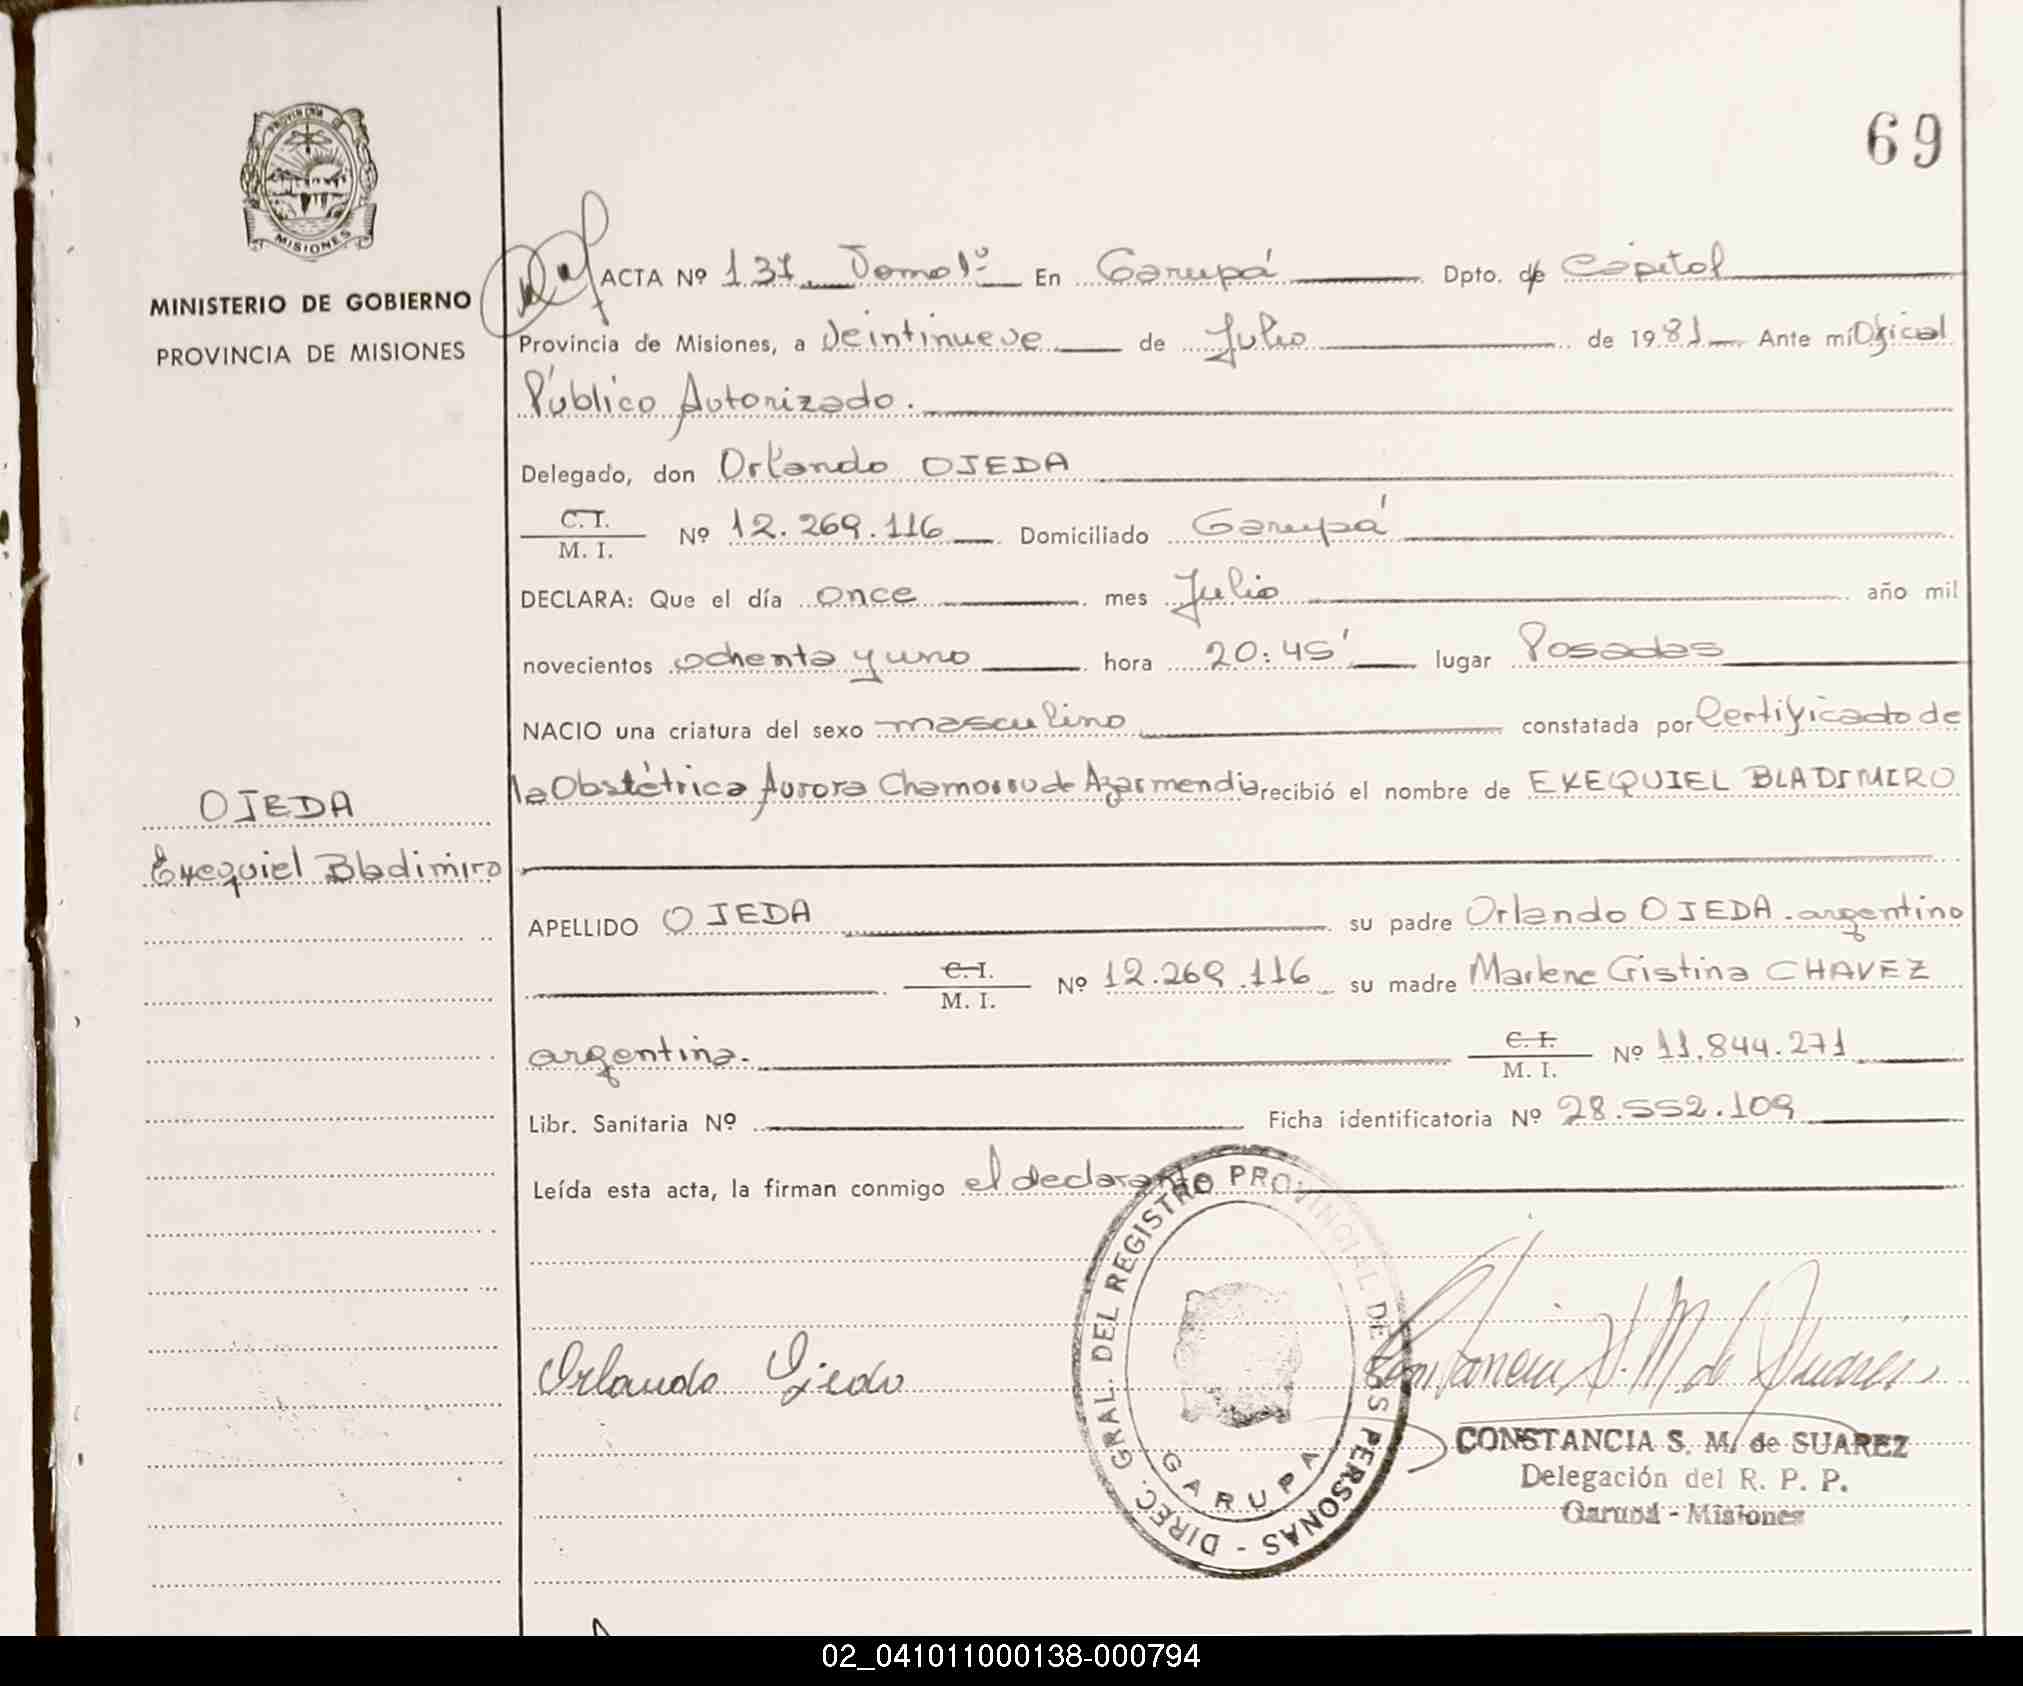 PROVINCIA DE
MISIONES
MINISTERIO DE GOBIERNO
PROVINCIA DE MISIONES
OJEDA
Exequiel Bladimiro
69
ACTA Nº 137 Tomo 1º En Garupá Dpto. de Capital
Provincia de Misiones, a veintinueve de Julio de 1981 Ante mí Oficial
Público Autorizado.
Delegado, don Orlando OJEDA
C.I.
M. I. Nº 12.269.116 Domiciliado Garupá
DECLARA: Que el día once mes Julio año mil
novecientos ochenta y uno hora 20:45' lugar Posadas
NACIO una criatura del sexo masculino constatada por Certificado de
la Obstétrica Aurora Chamorro de Azarmendia recibió el nombre de EXEQUIEL BLADIMIRO
APELLIDO OJEDA su padre Orlando OJEDA. argentino
C. I.
M. I. Nº 12.269.116 su madre Marlene Cristina CHAVEZ
argentina. C. I.
M. I. Nº 11.844.271
Libr. Sanitaria Nº Ficha identificatoria Nº 28.552.109
Leída esta acta, la firman conmigo el declarante
Orlando Ojeda
DIREC. GRAL. DEL REGISTRO PROVINCIAL DE LAS PERSONAS -
GARUPA
Constancia S. M. de Suarez
CONSTANCIA S. M. de SUAREZ
Delegación del R. P. P.
Garupá - Misiones
02_041011000138-000794